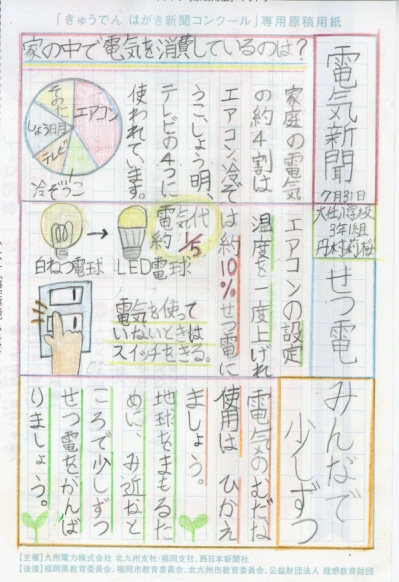 「きゅうでん はがき新聞コンクール」専用原稿用紙
電気新聞
7月31日
3年1組
家の中で電気を消費しているのは?
家庭の電気
の約4割は
エアコン、冷ぞ
うこ、しょう明、
テレビの4つに
使われています。
エアコン
冷ぞうこ
テレビ
しょう明
その他
せつ電
エアコンの設定
温度を一度上げれ
は約10%せつ電に
電気代
約1/5
白ねつ電球
→
LED電球
電気を使って
いないときは
スイッチをきる。
みんなで
少しずつ
電気のむだな
使用は ひかえ
ましょう。
地球をまもるた
めに、み近なと
ころで少しずつ
せつ電をがんば
りましょう。
【主催】九州電力株式会社 北九州支社・福岡支社、西日本新聞社
【後援】福岡県教育委員会、福岡市教育委員会、北九州市教育委員会、公益財団法人 理想教育財団